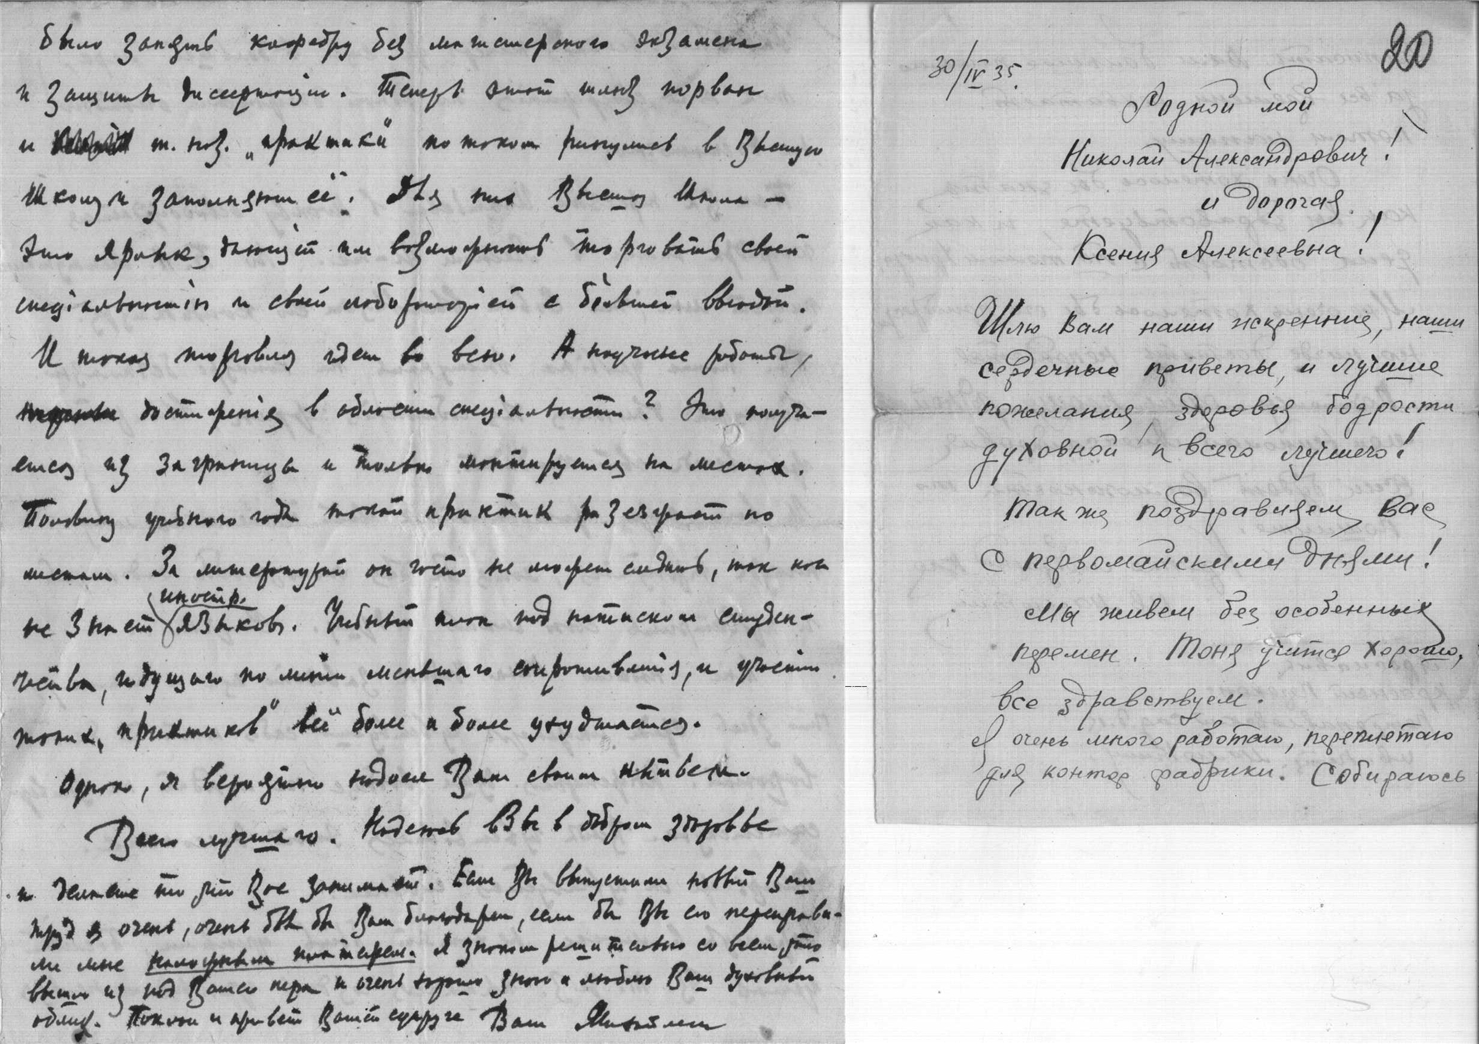 было занять кафедру без магистерского экзамена
и защиты диссертации. Теперь этот шлюз порван
и т. наз. „практики" потоком ринулись в Высшую
Школу и заполняют её. Для них Высшая Школа —
это ярлык, дающий им возможность торговать своей
специальностью и своей лабораторией с большей выгодой.
И такая торговля идет во всю. А научные работы,
достижения в области специальности? Это получа-
ется из заграницы и только монтируется на местах.
Половину учебного года такой практик разъезжает по
местам. За литературой он часто не может следить, так как
не знает иностр. языков. Учебный план под натиском студен-
чества, идущаго по линии меньшаго сопротивления, и участии
таких „практиков" всё более и более ухудшается.
Однако, я вероятно надоел Вам своим нытьем.
Всего лучшаго. Надеюсь вы в добром здоровье
и делаете то что Вас занимает. Если Вы выпустили новый Ваш
труд я очень, очень был бы Вам благодарен, если бы Вы его переправи-
ли мне наложным платежем. Я знаком решительно со всем, что
вышло из под Вашего пера и очень хорошо знаю и люблю Ваш духовный
облик. Поклон и привет Вашей супруге Ваш
20
30/IV 35.
Родной мой
Николай Александрович!
и дорогая
Ксения Алексеевна!
Шлю Вам наши искренние, наши
сердечные приветы, и лучшие
пожелания, здоровья бодрости
духовной и всего лучшего!
Также поздравляем Вас
с первомайскими днями!
Мы живем без особенных
перемен. Тоня учится хорошо,
все здравствуем.
Я очень много работаю, переплетаю
для контор фабрики. Собираюсь